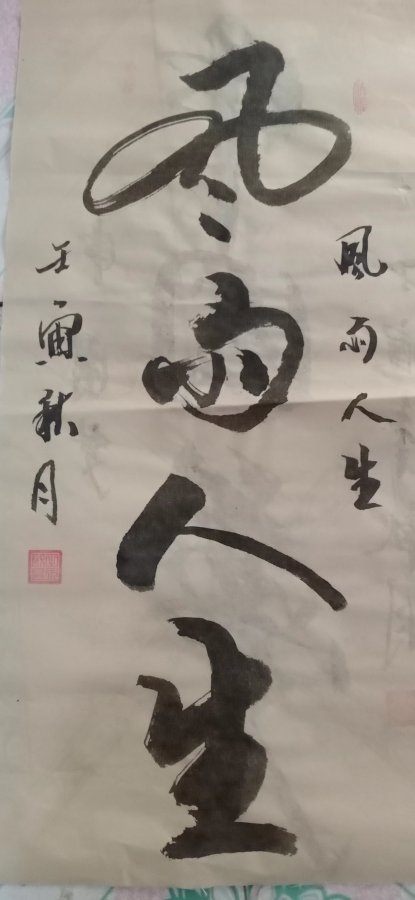 风雨人生
風雨人生
壬寅秋月